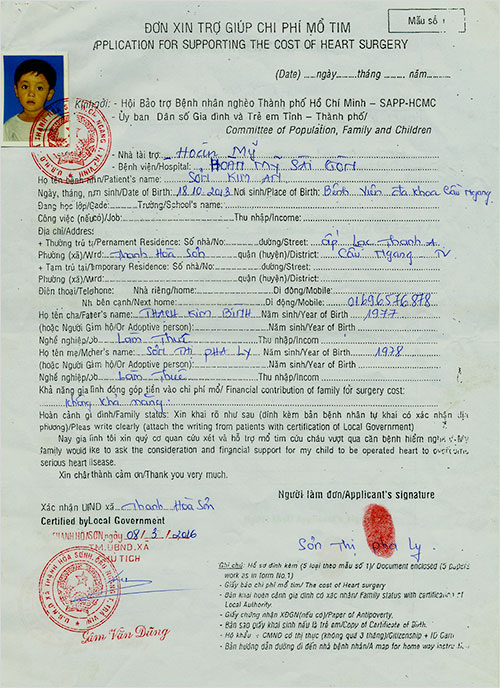 Mẫu số 1
ĐƠN XIN TRỢ GIÚP CHI PHÍ MỔ TIM
APPLICATION FOR SUPPORTING THE COST OF HEART SURGERY
(Date) .... ngày .......... tháng .......... năm..........
Kính gởi: - Hội Bảo trợ Bệnh nhân nghèo Thành phố Hồ Chí Minh – SAPP-HCMC
- Ủy ban Dân số Gia đình và Trẻ em Tỉnh – Thành phố/
Committee of Population, Family and Children
- Nhà tài trợ: Hoàn Mỹ
- Bệnh viện/Hospital: HOÀN MỸ SÀI GÒN
Họ tên bệnh nhân/Patient's name: SƠN KIM AN
Ngày, tháng, năm sinh/Date of Birth: 18.10.2013 Nơi sinh/Place of Birth: Bệnh Viện đa khoa Cầu Ngang
Đang học lớp/Grade: Trường/School's name:
Công việc (nếu có)/Job: Thu nhập/Income:
Địa chỉ/Address:
+ Thường trú tại/Pernament Residence: Số nhà/No: đường/Street: ấp Lạc Thạnh A
Phường (xã)/Wrd: Thạnh Hoà Sơn quận (huyện)/District: Cầu Ngang TV
+ Tạm trú tại/Temporary Residence: Số nhà/No: đường/Street:
Phường (xã)/Wrd: quận (huyện)/District:
Điện thoại/Telephone: Nhà riêng/home: Di động/Mobile:
Nhà bên cạnh/Next home: Di động/Mobile: 01696576878
Họ tên cha/Father's name: THẠCH KIM BÌNH Năm sinh/Year of Birth 1977
(hoặc Người Giám hộ/Or Adoptive person): Năm sinh/Year of Birth
Nghề nghiệp/Job Làm Thuê Thu nhập/Income:
Họ tên mẹ/Mother's name: SƠN THỊ PHA LY Năm sinh/Year of Birth 1978
(hoặc Người Giám hộ/Or Adoptive person): Năm sinh/Year of Birth
Nghề nghiệp/Job Làm Thuê Thu nhập/Income:
Khả năng gia đình đóng góp tiền vào chi phí mổ/ Financial contribution of family for surgery cost:
Không khả năng
Hoàn cảnh gia đình/Family status: Xin khai rõ như sau (đính kèm bản bệnh nhân tự khai có xác nhận địa
phương)/Pleas write clearly (attach the writing from patients with certification of Local Government)
Nay gia đình tôi xin quý cơ quan cứu xét và hỗ trợ mổ tim cứu cháu vượt qua căn bệnh hiểm nghèo-My
family would like to ask the consideration and finnical support for my child to be operated heart to overcome
serious heart disease.
Xin chân thành cảm ơn/Thank you very much.
Người làm đơn/Applicant's signature
Xác nhận UBND xã Thạnh Hoà Sơn
Certified by Local Government
THẠNH HOÀ SƠN, ngày 08/3/2016
TM.UBND.XÃ
CHỦ TỊCH
Sơn Thị Pha Ly
Lâm Văn Dũng
Ghi chú: Hồ sơ đính kèm (5 loại theo mẫu số 1)/ Document enclosed (5 papers
work as in form No.1)
- Giấy báo chi phí mổ tim/ The cost of Heart surgery
- Bản khai hoàn cảnh gia đình có xác nhận/ Family status with certification of
Local Authority
- Giấy chứng nhận XĐGN(nếu có)/Paper of Antipoverty.
- Bản sao giấy khai sinh nếu là trẻ em/Copy of Certificate of Birth.
- Hộ khẩu + CMND có thị thực (không quá 3 tháng)/Citizenship + ID Card
- Bản hướng dẫn đường đi đến nhà bệnh nhân/A map for home way instruction